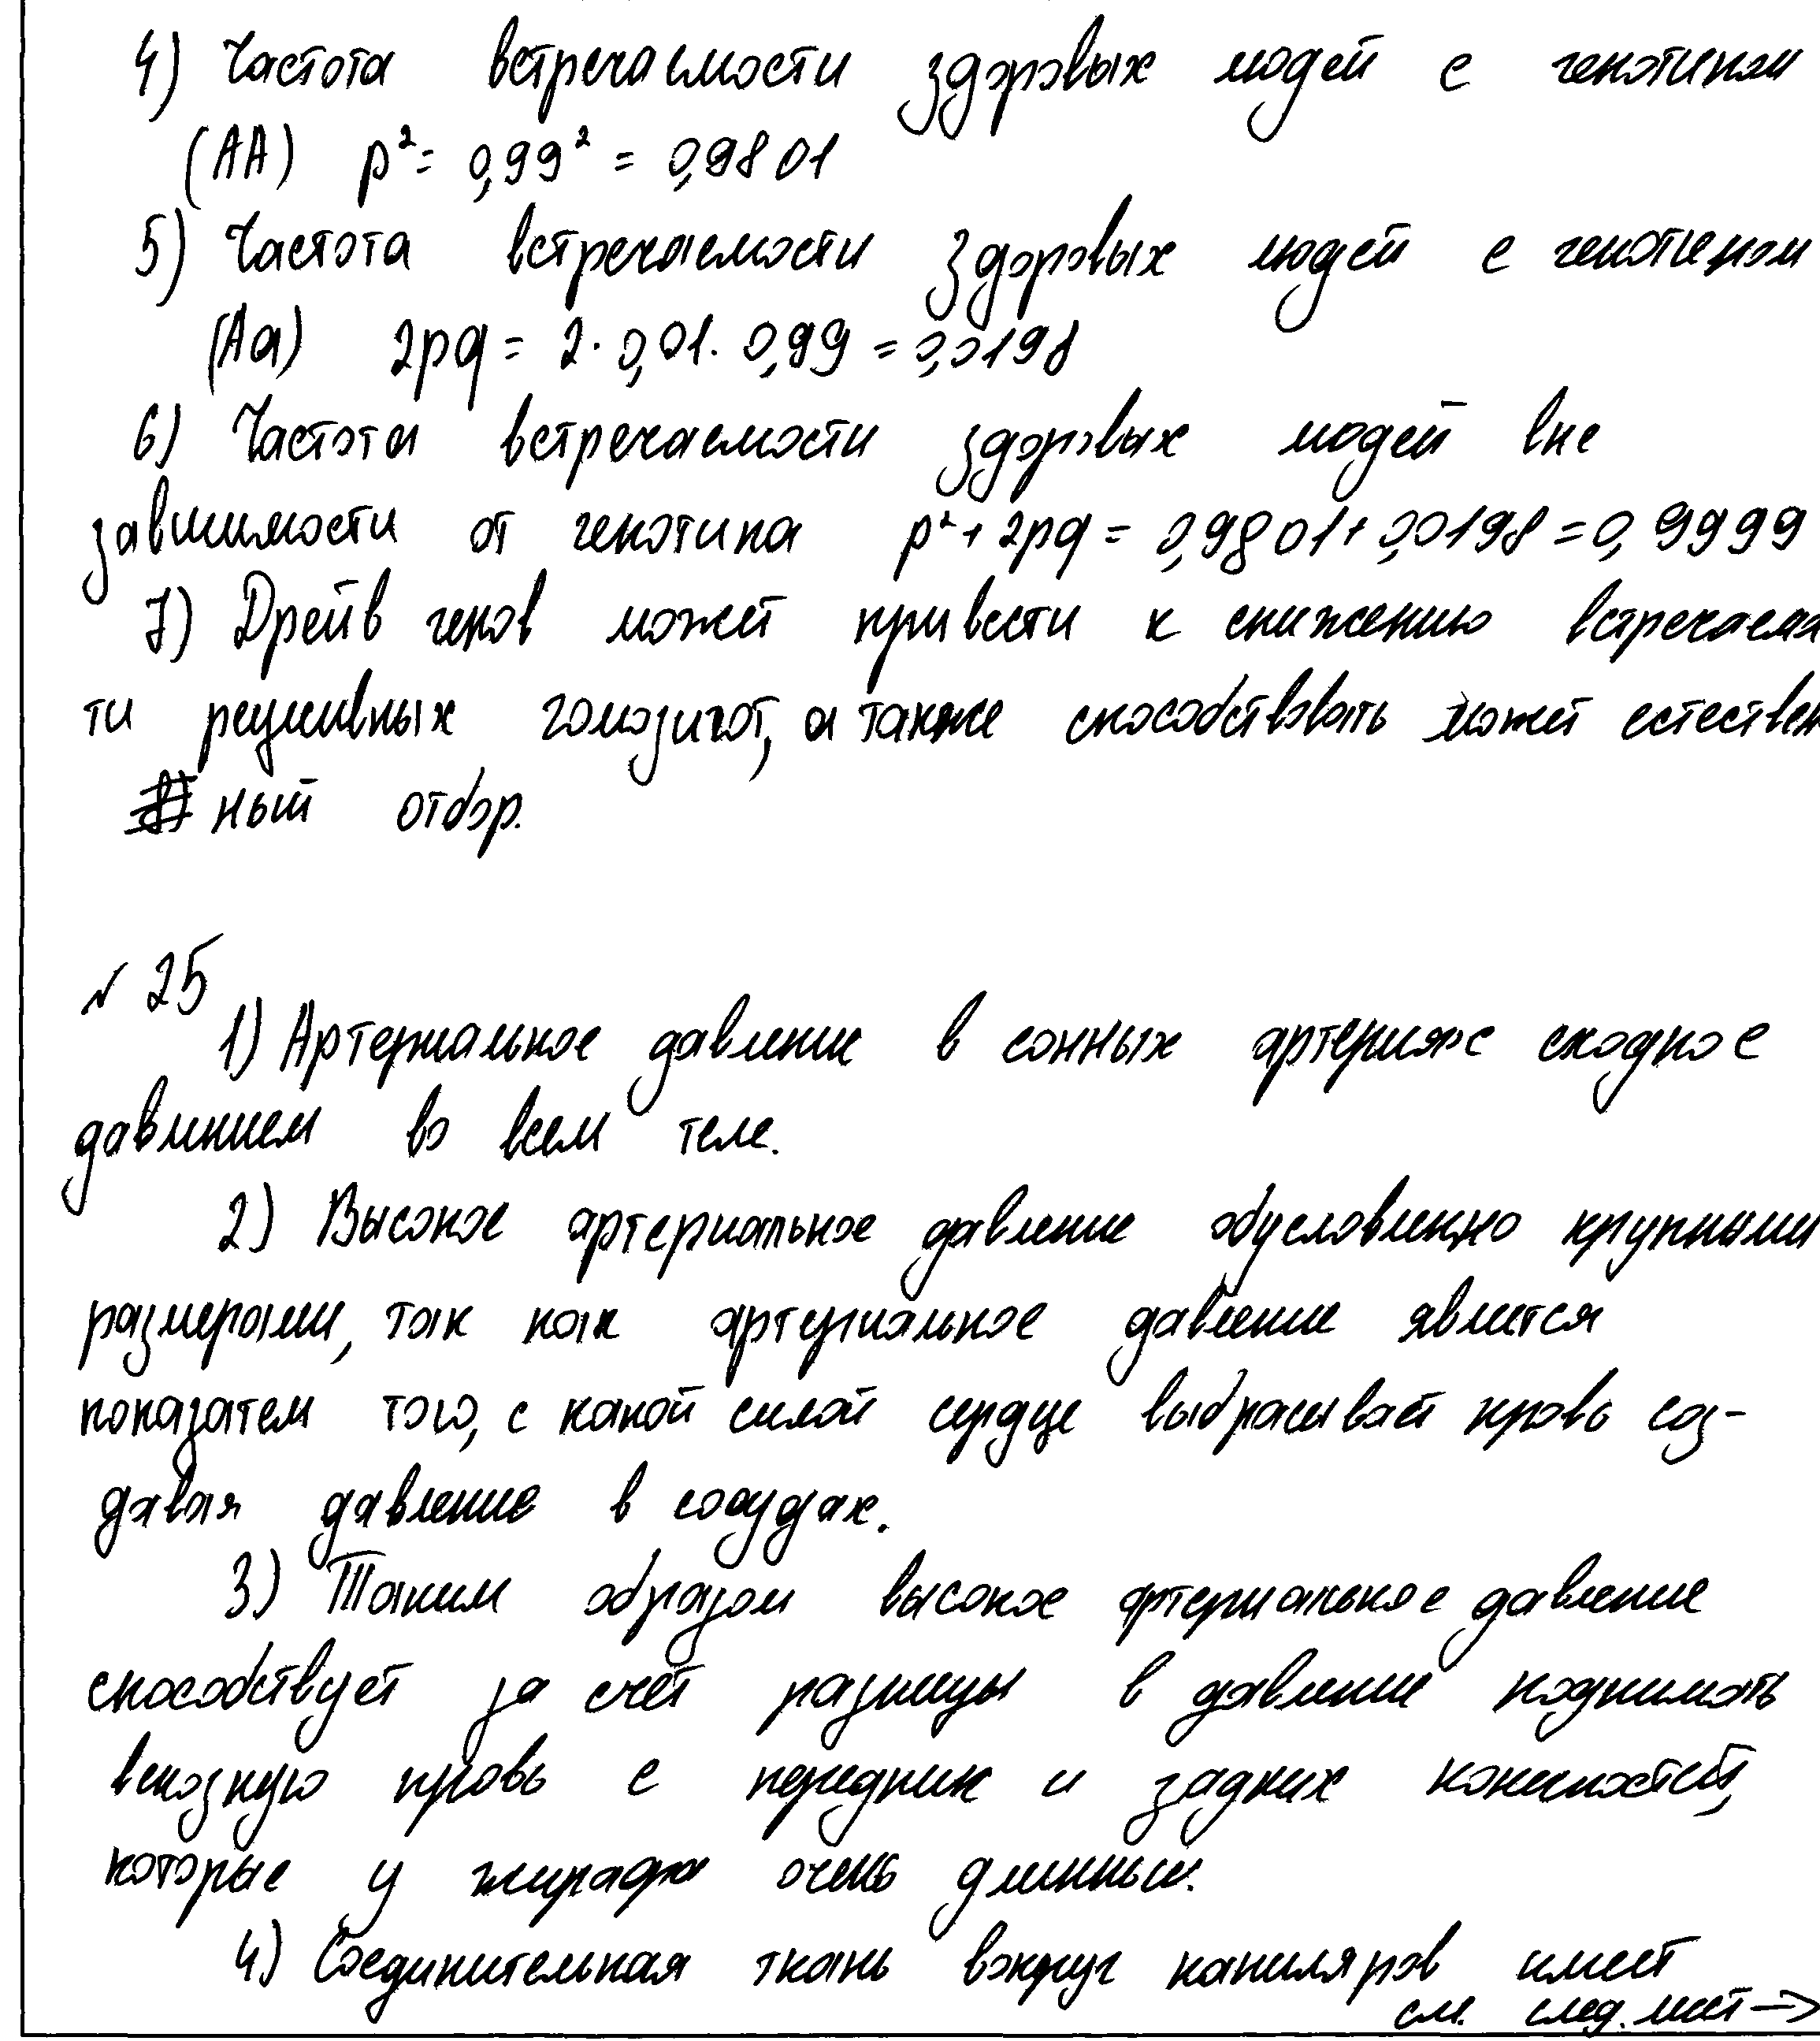 4) Частота встречаемости здоровых людей с генотипом
(АА) p² = 0,99² = 0,9801
5) Частота встречаемости здоровых людей с генотипом
(Аа) 2pq = 2 · 0,01 · 0,99 = 0,0198
6) Частота встречаемости здоровых людей вне
зависимости от генотипа p² + 2pq = 0,9801 + 0,0198 = 0,9999
7) Дрейв генов может привести к снижению встречаемос
ти рецесивных гомозигот, а также способствовать может естествен
ный отбор.
№ 25
1) Артериальное давление в сонных артериях сходное
давлением во всем теле.
2) Высокое артериальное давление обусловленно крупными
размерами, так как артериальное давление является
показатем того, с какой силой сердце выбрасывает кровь соз-
давая давление в сосудах.
3) Таким образом высокое артериальное давление
способствует за счёт разницы в давление поднимать
венозную кровь с передних и задних конечностей,
которые у жирафа очень длинные.
4) Соединительная ткань вокруг капиляров имеет
см. след. лист →